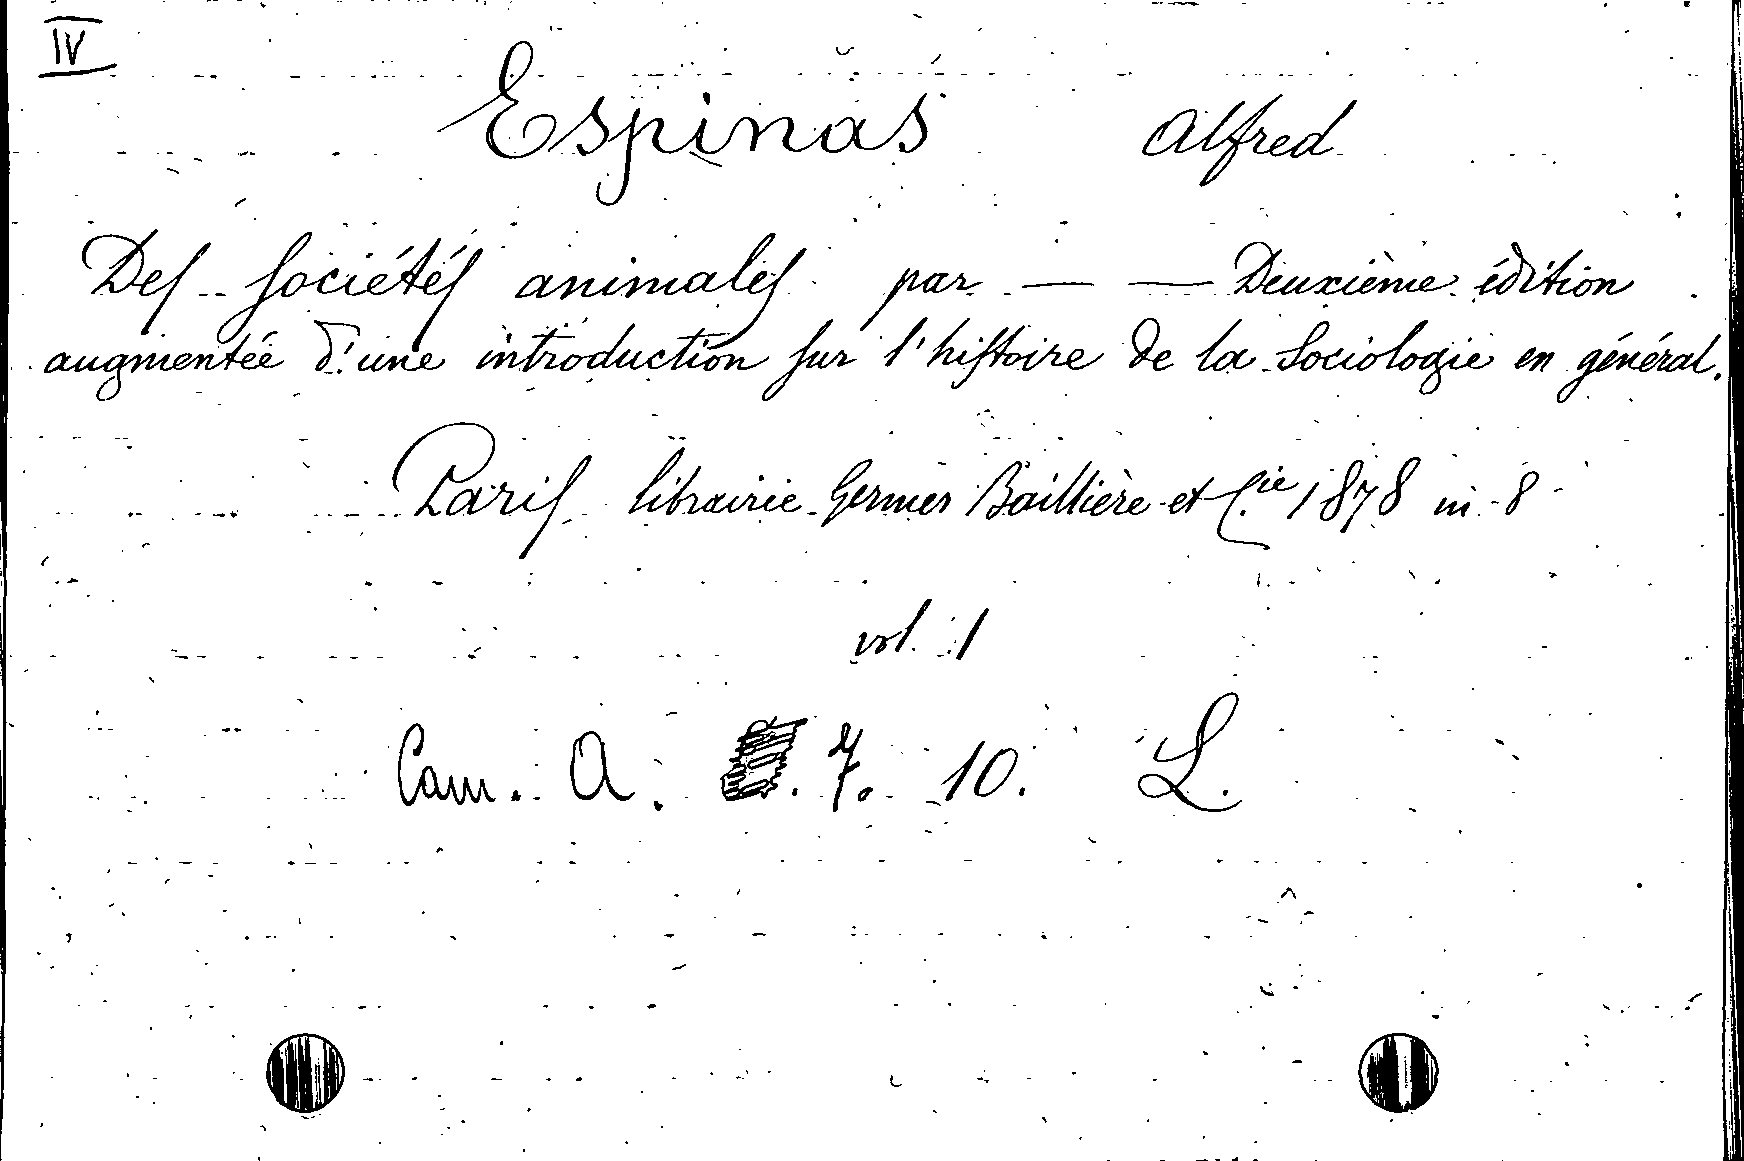 IV
Espinas Alfred
Des Sociétés animales par — — Deuxième édition
augmentée d'une introduction sur l'histoire de la Sociologie en général.
Paris librairie Germer Baillière et C.ie 1878 in-8
vol. 1
Cam. A. 7. 10. L.